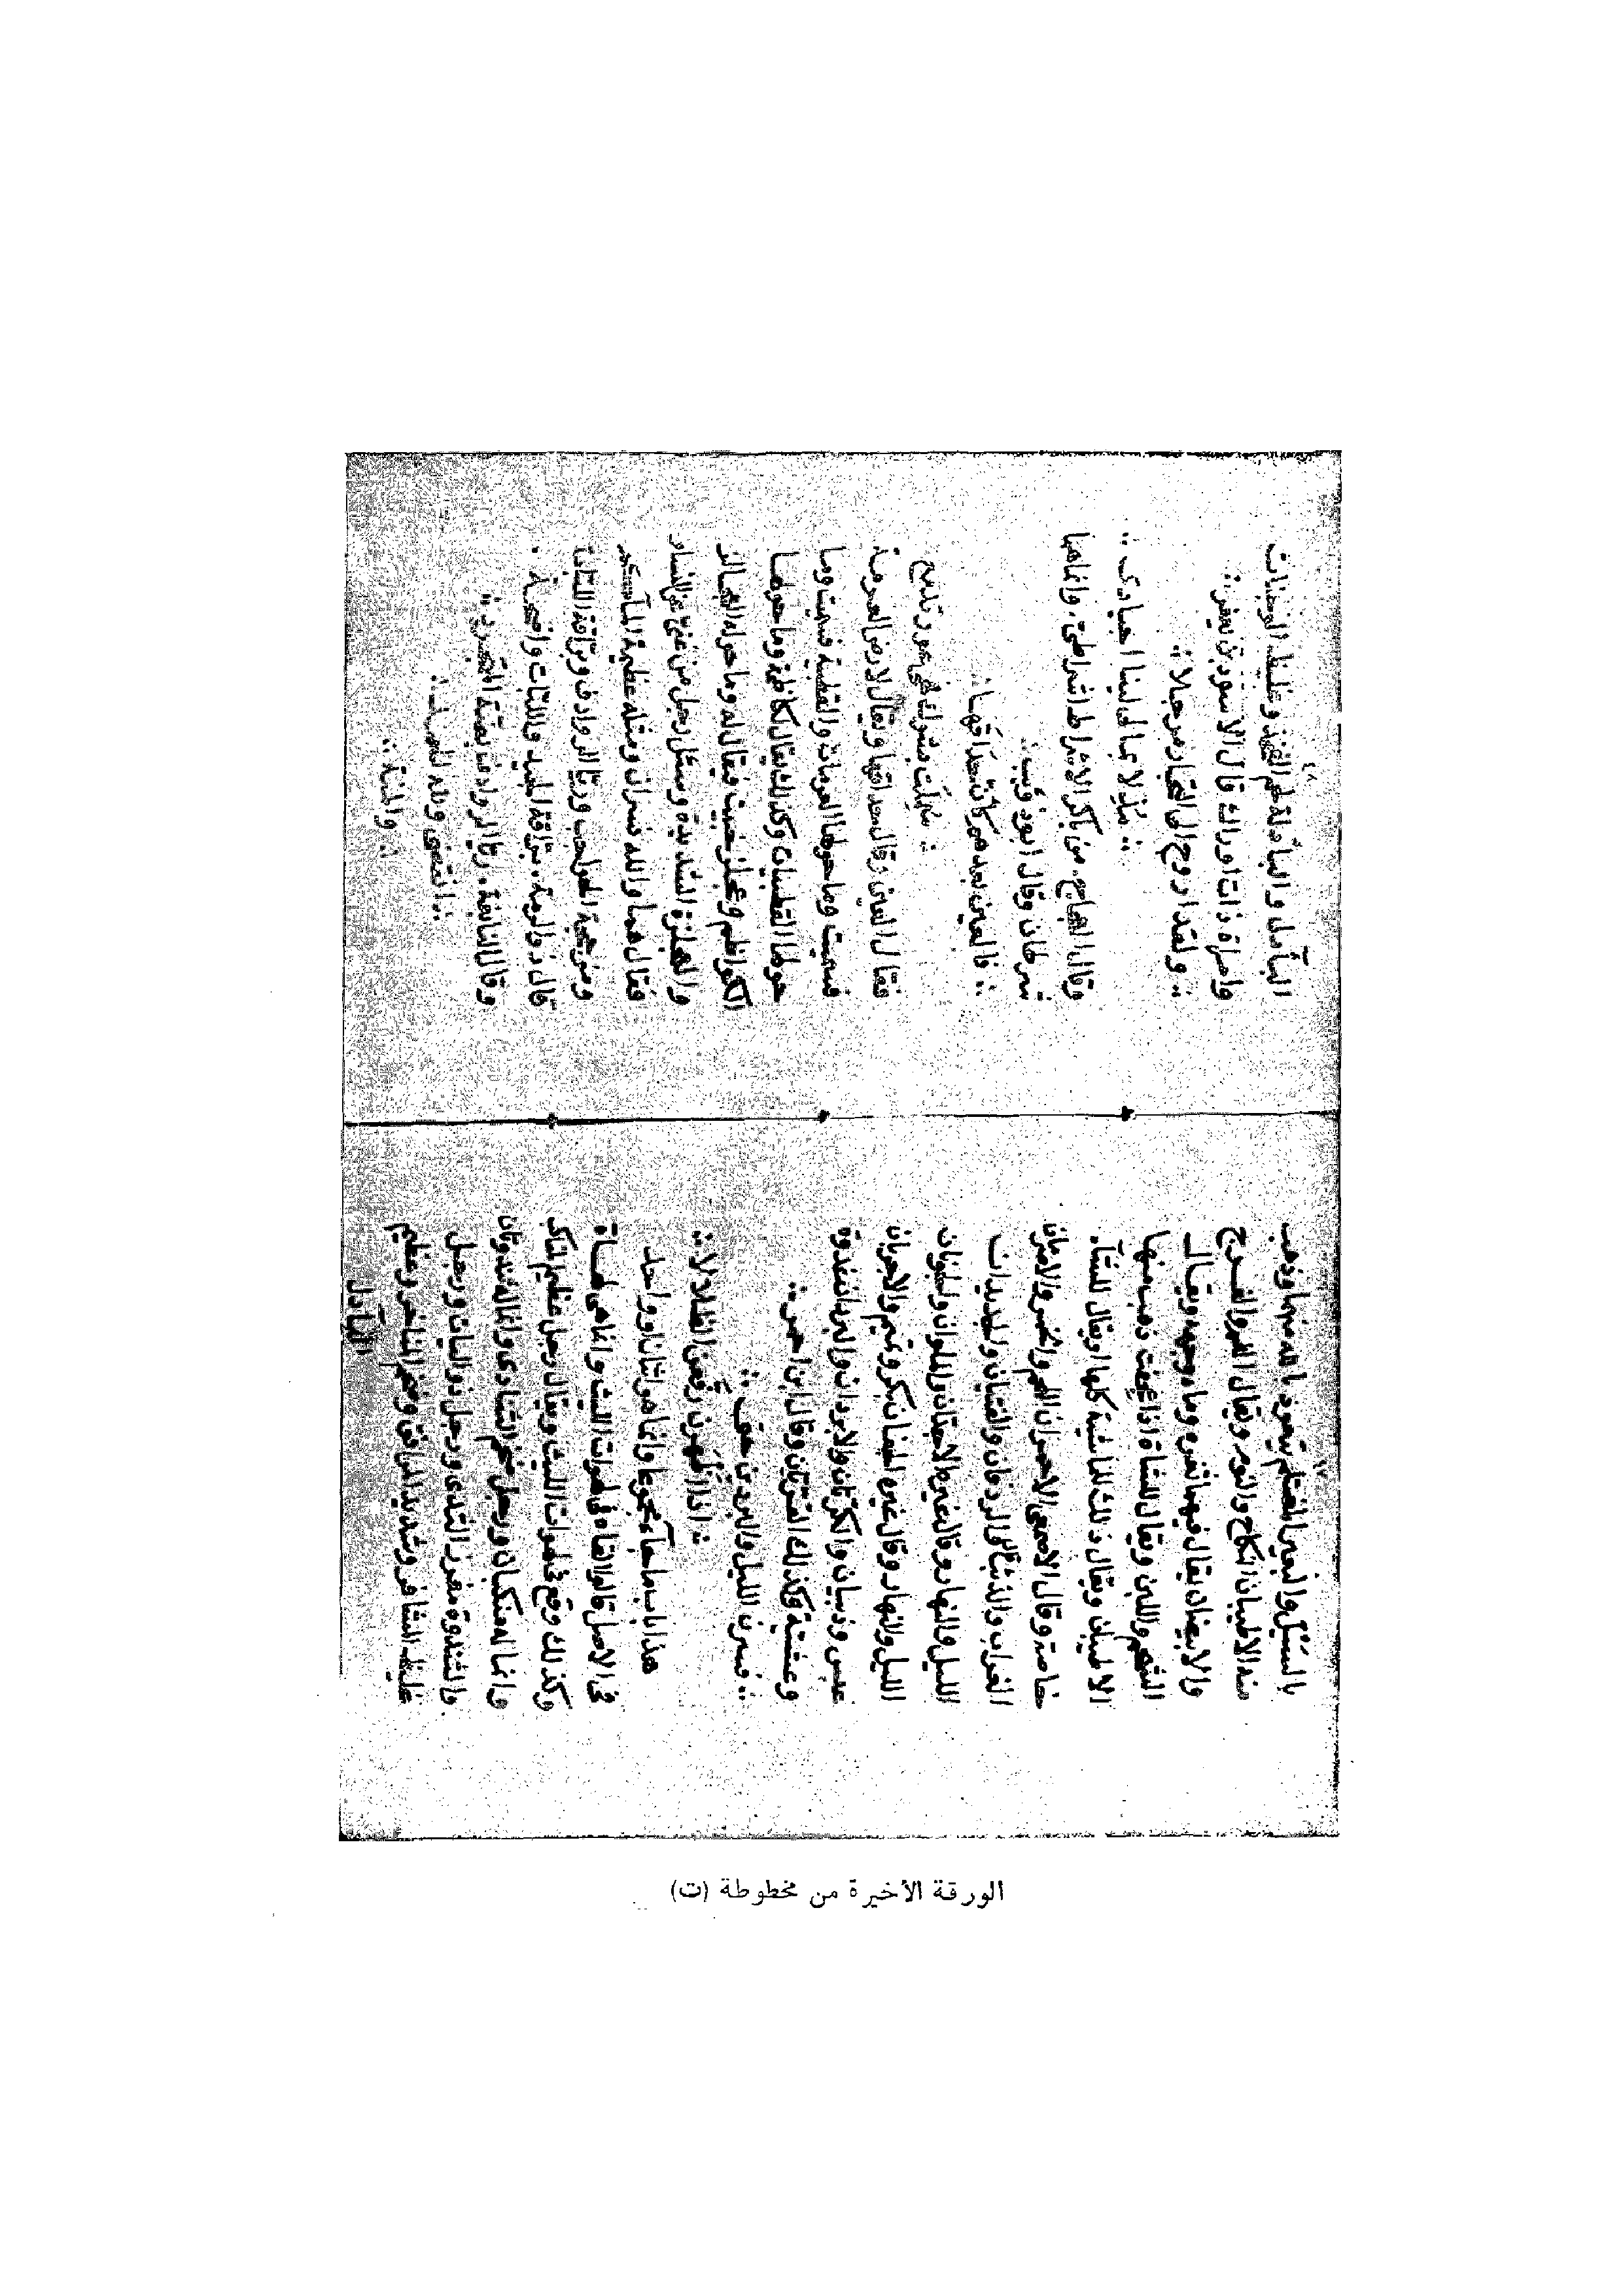 بالسيل والبعير المغتلم يتعوذ بالله منهما وذهب
منه الاطيبان النكاح والنوم ويقال الفم والفرج
والابيضان يقال فيهما وماء وجهه ويقال
الشحم واللبن ويقال للشاة اذا عجفت ذهب منها
الاطيبان ويقال ذلك للماشية كلها ويقال للنساء
خاصة وقال الاصمعي الاحمران اللحم والخمر والاصرمان
الغراب والذئب والردفان والفتيان والجديدان
الليل والنهار وقال غيره الاجدان والملوان والجونان
الليل والنهار وقال غيره الجفان بكر وتميم والاجربان
عبس وذبيان والكرتان والابردان والبردان غدوة
وعشية وكذلك القرتان وقال ابن احمر
فسرن الليل والبردين حتى
اذا اظهرن رفعن الظلالا
هذا باب ما جاء مجموعا وانما هو اثنان او واحد
في الاصل قالوا القاه في لهوات الليث وانما هي لهاة
وكذلك وقع في لهوات الليث ويقال رجل عظيم المناكب
وانما له منكبان ورجل ضخم الثنادي وانما له ثندوتان
والثندوة مغرز الثدي ورجل ذو اليات ورجل
غليظ المشافر وشديد المرافق وضخم المناخر وعظيم
البآدل
البآدل والبأدلة لحم الفخذ وغليظ الوجنات
وامراة ذات اوراك قال الاسود بن يعفر
ولقد اروح الى التجار مرجلا
مذلا بمالي لينا اجيادي
وقال العجاج من باكر الاشراط اشراطي وانما هما
شرطان وقال ابو ذؤيب
فالعين بعدهم كأن حداقها
سملت بشوك فهي عور تدمع
فقال العين وقال حداقها ويقال لارض العرمة
فسميت وما حولها العرمات والقطبية فسميت وما
حولها القطبيات وكذلك يقال لكاظمة وما حولها
الكواظم وعجلز كثيب فيقال له وما حوله العجالز
والعجلزة الشديدة وسئل رجل من غني عن النساء
فقال هما والله نسران ومثله عظيمة المآكم
ومنه الهوالب وريا الروادف وبراقة اللبات
قال ذو الرمة براقة الجيد واللبات واضحة
وقال النابغة ريا الروادف بضة المتجرد
انتهى ولله الحمد
والمنة
الورقة الأخيرة من مخطوطة (ت)